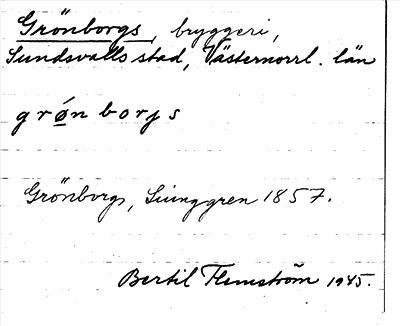 Grönborgs, bryggeri,
Sundsvalls stad, Västernorrl. län
grǿn borjs
Grönborgs, Ljunggren 1857.
Bertil Flemström 1945.